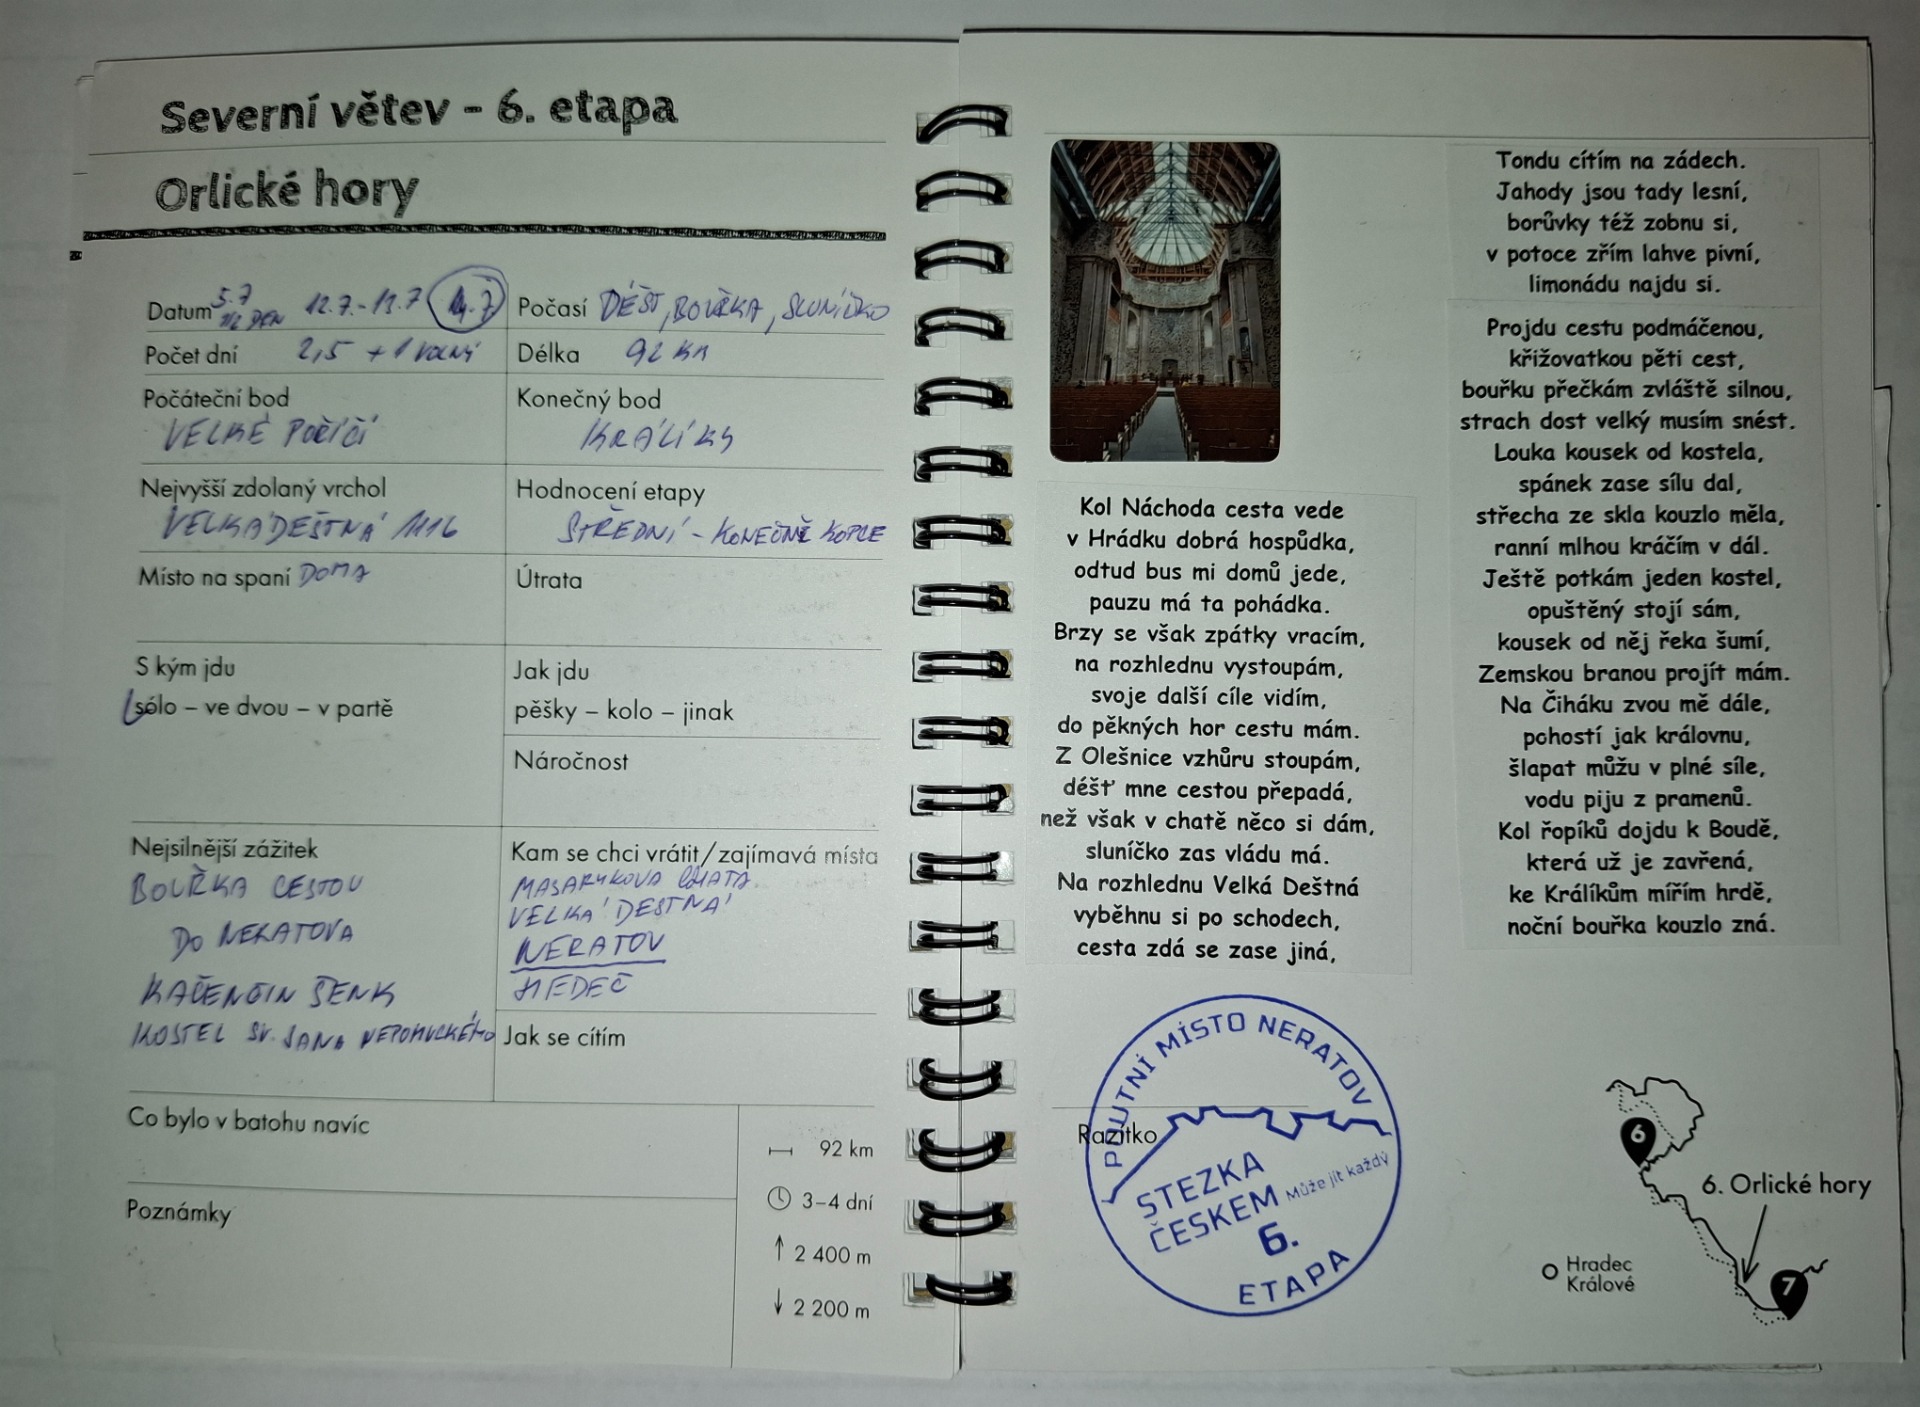 Severní větev - 6. etapa
Orlické hory
Datum 5.7 1/2 DEN 12.7.-13.7 14.7
Počasí DÉŠŤ, BOUŘKA, SLUNÍČKO
Počet dní 2,5 + 1 VOLNÝ
Délka 92 KM
Počáteční bod
VELKÉ POŘÍČÍ
Konečný bod
KRÁLÍKY
Nejvyšší zdolaný vrchol
VELKÁ DEŠTNÁ 1116
Hodnocení etapy
STŘEDNÍ - KONEČNĚ KOPCE
Místo na spaní DOMA
Útrata
S kým jdu
sólo – ve dvou – v partě
Jak jdu
pěšky – kolo – jinak
Náročnost
Nejsilnější zážitek
BOUŘKA CESTOU
DO NERATOVA
KAČENČIN ŠENK
KOSTEL SV. JANA NEPOMUCKÉHO
Kam se chci vrátit/zajímavá místa
MASARYKOVA CHATA
VELKÁ DEŠTNÁ
NERATOV
HEDEČ
Jak se cítím
Co bylo v batohu navíc
Poznámky
92 km
3–4 dní
2 400 m
2 200 m
Kol Náchoda cesta vede
v Hrádku dobrá hospůdka,
odtud bus mi domů jede,
pauzu má ta pohádka.
Brzy se však zpátky vracím,
na rozhlednu vystoupám,
svoje další cíle vidím,
do pěkných hor cestu mám.
Z Olešnice vzhůru stoupám,
déšť mne cestou přepadá,
než však v chatě něco si dám,
sluníčko zas vládu má.
Na rozhlednu Velká Deštná
vyběhnu si po schodech,
cesta zdá se zase jiná,
Tondu cítím na zádech.
Jahody jsou tady lesní,
borůvky též zobnu si,
v potoce zřím lahve pivní,
limonádu najdu si.
Projdu cestu podmáčenou,
křižovatkou pěti cest,
bouřku přečkám zvláště silnou,
strach dost velký musím snést.
Louka kousek od kostela,
spánek zase sílu dal,
střecha ze skla kouzlo měla,
ranní mlhou kráčím v dál.
Ještě potkám jeden kostel,
opuštěný stojí sám,
kousek od něj řeka šumí,
Zemskou branou projít mám.
Na Čiháku zvou mě dále,
pohostí jak královnu,
šlapat můžu v plné síle,
vodu piju z pramenů.
Kol řopíků dojdu k Boudě,
která už je zavřená,
ke Králíkům mířím hrdě,
noční bouřka kouzlo zná.
Razítko
POUTNÍ MÍSTO NERATOV
STEZKA
ČESKEM Může jít každý
6.
ETAPA
6
6. Orlické hory
Hradec
Králové
7